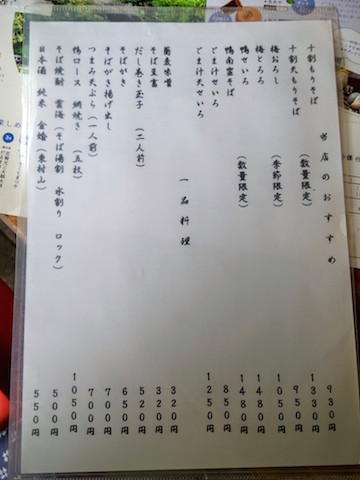 当店のおすすめ
十割もりそば (数量限定) 930円
十割天もりそば 1330円
梅おろし (季節限定) 950円
梅とろろ 1050円
鴨せいろ (数量限定) 1480円
鴨南蛮そば 1480円
ごま汁せいろ 850円
ごま汁天せいろ 1250円
一品料理
蕎麦味噌 320円
そば豆富 320円
だし巻き玉子 (二人前) 520円
そばがき 650円
そばがき揚げ出し 700円
つまみ天ぷら (一人前) 700円
鴨ロース 網焼き (五枚) 1050円
そば焼酎 雲海 (そば湯割 水割り ロック) 500円
日本酒 純米 金婚 (東村山) 550円